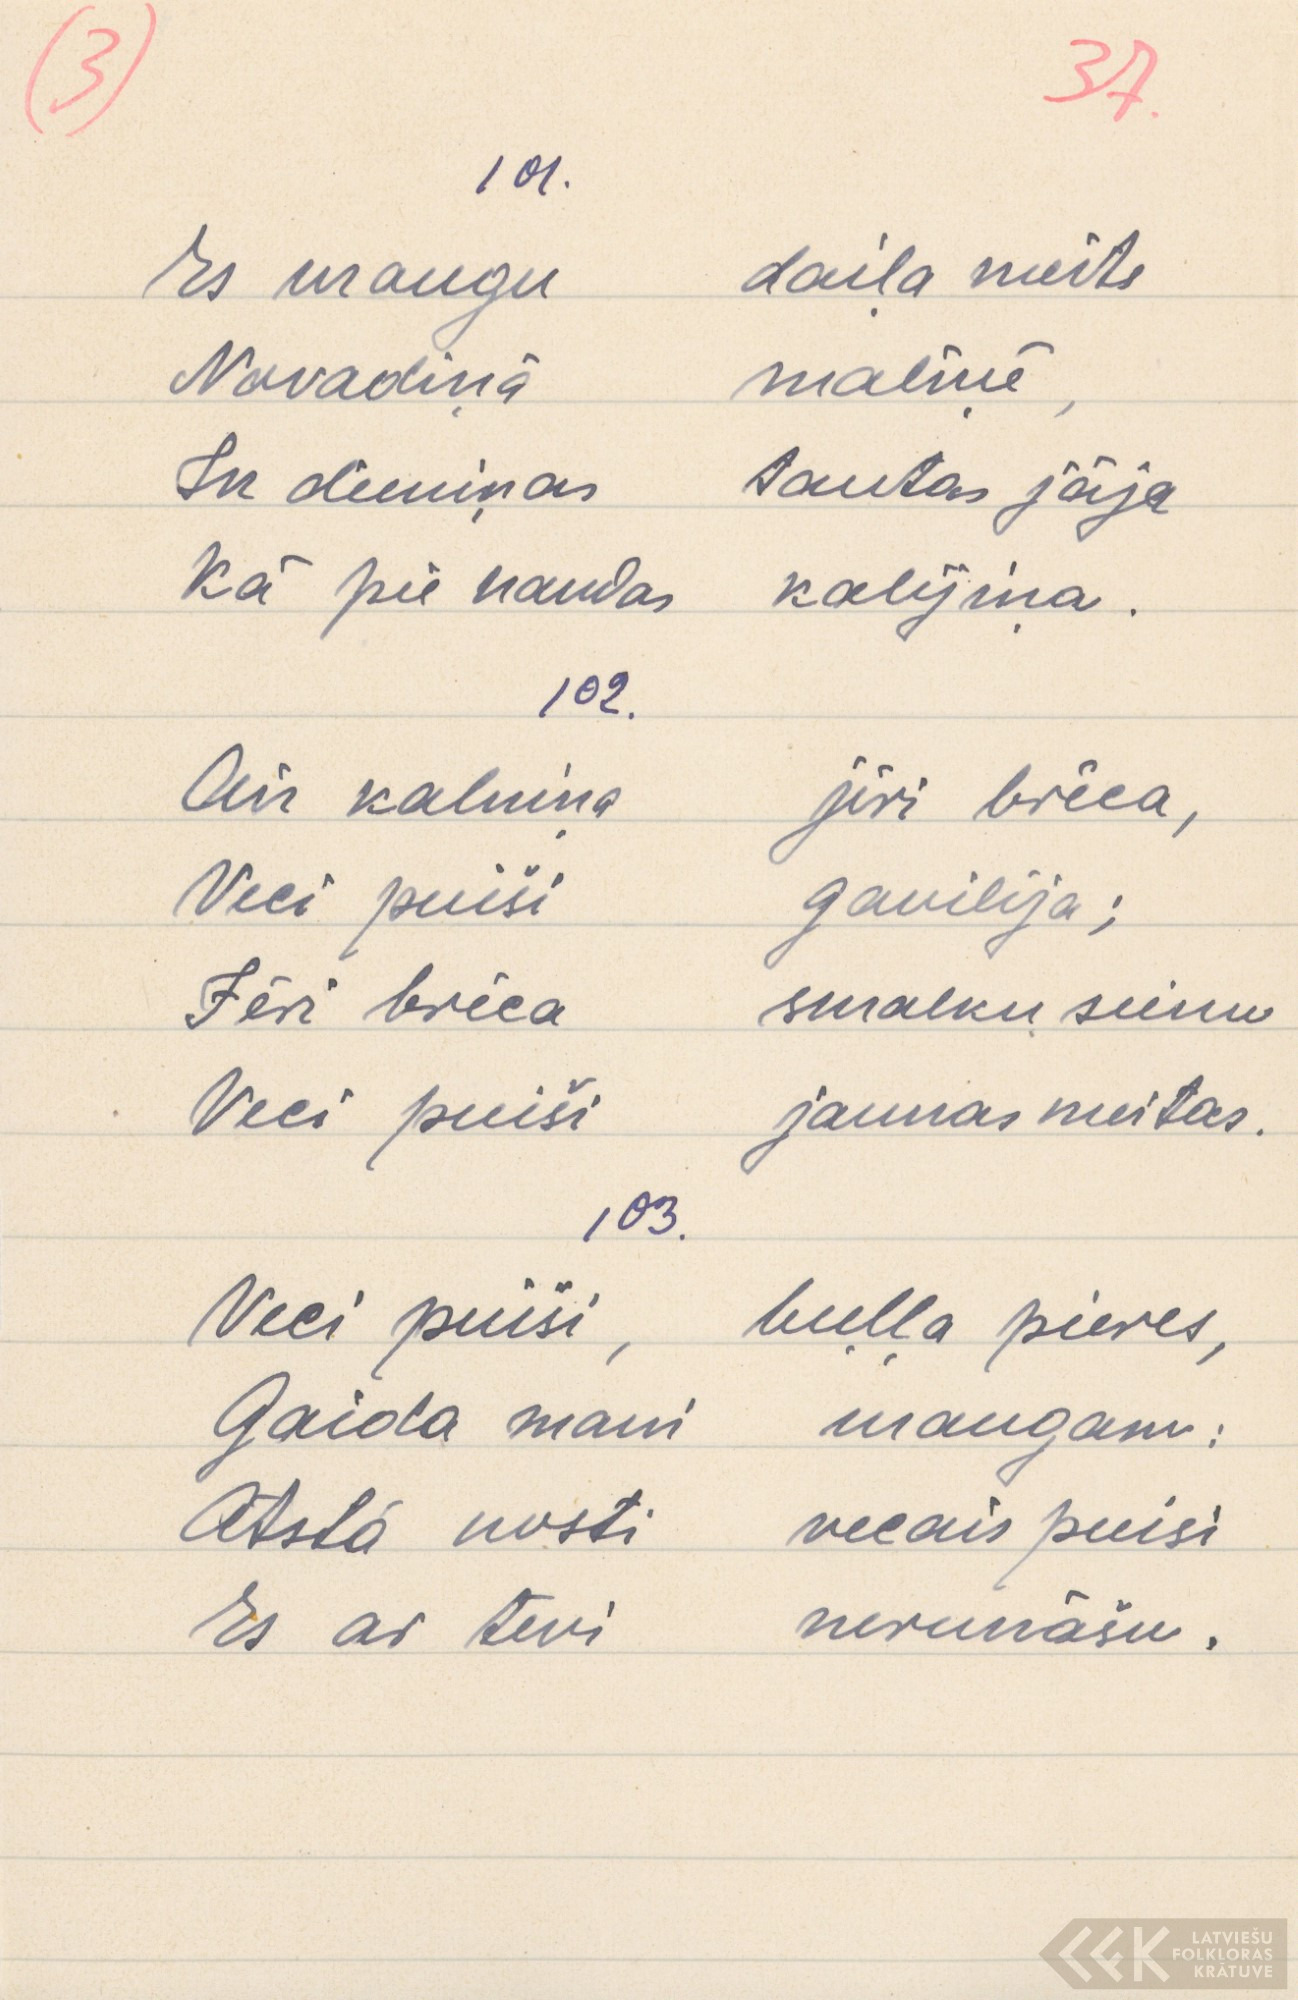 (3) 37.
101.
Es uraugu daiļa meite
Novadiņā maliņē,
Ik dieniņas tautas jāja
Kā pie naudas kalējiņa.
102.
Aiz kalniņa jēri brēca,
Veci puiši gavilēja;
Jēri brēca smalku sienu
Veci puiši jaunas meitas.
103.
Veci puiši, buļļa pieres,
Gaida mani uraugam:
Atstā nosti vecais puisi
Es ar tevi nerunāšu.
LATVIEŠU
FOLKLORAS
KRĀTUVE